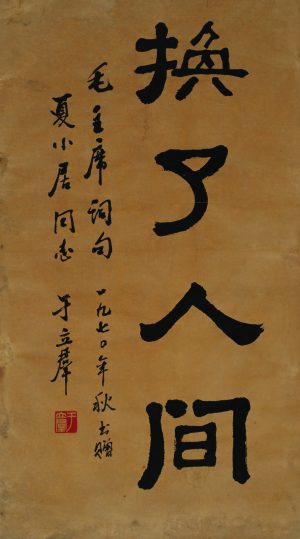 换了人间
毛主席词句 一九七〇年秋书赠
夏小居同志 于立羣